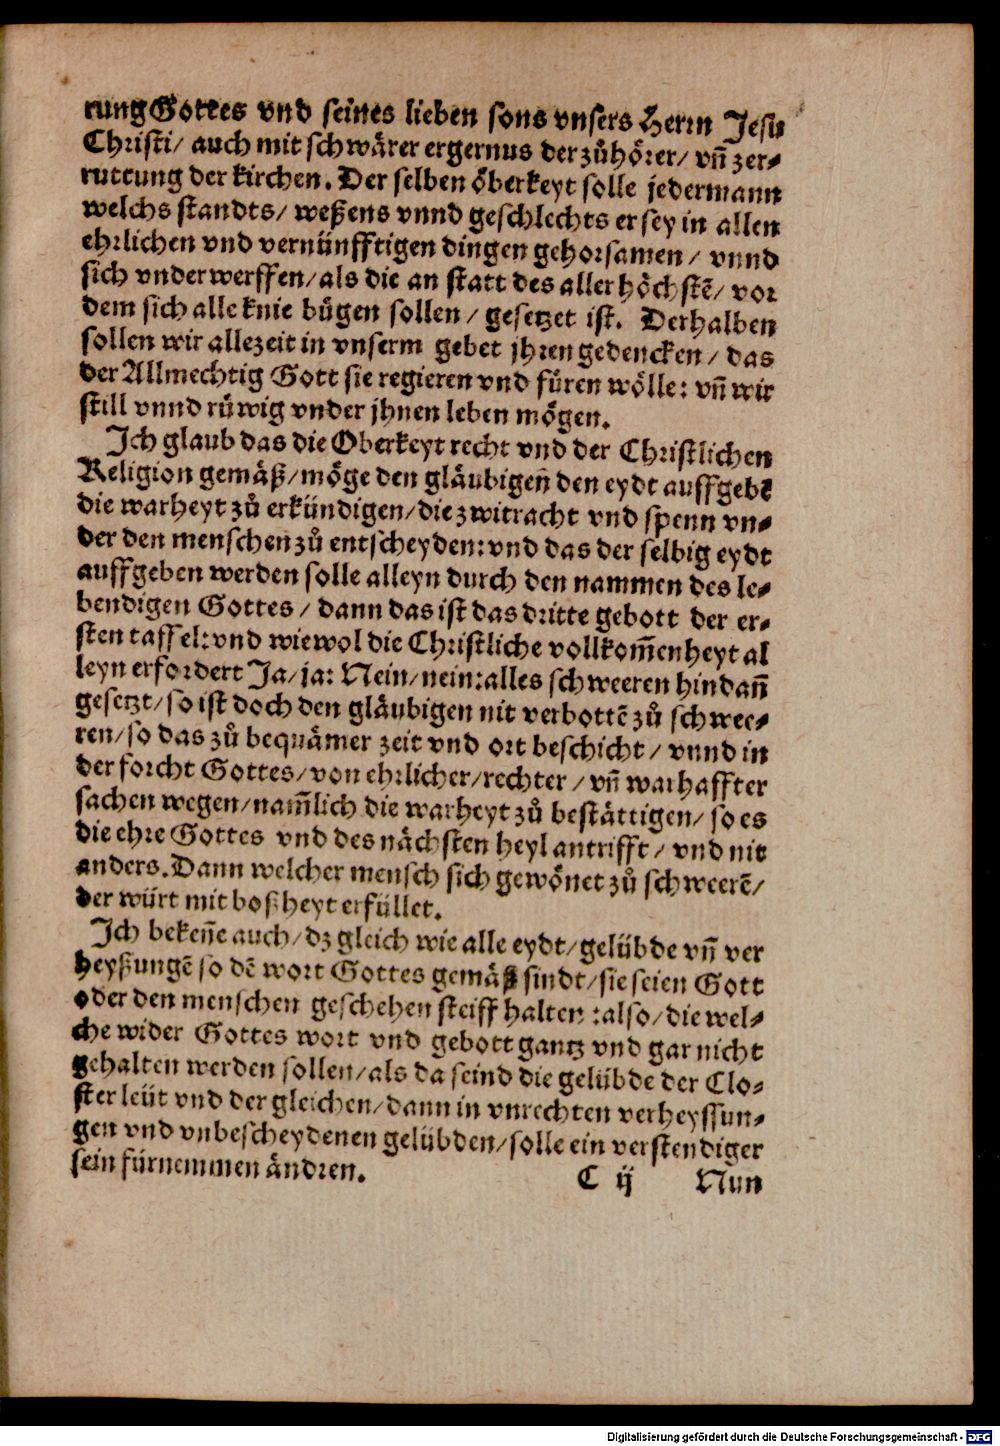 rung Gottes vnd seines lieben sons vnsers Herrn Jesu
Christi/ auch mit schwårer ergernus der zůhörer/ vñ zer-
ruttung der kirchen. Der selben öberkeyt solle jedermann
welchs standts/ weßens vnnd geschlechts er sey in allen
ehrlichen vnd vernünfftigen dingen gehorsamen/ vnnd
sich vnderwerffen/ als die an statt des aller höchstẽ/ vor
dem sich alle knie bügen sollen/ gesetzet ist. Derhalben
sollen wir allezeit in vnserm gebet jhren gedencken/ das
der Allmechtig Gott sie regieren vnd füren wölle: vñ wir
still vnnd rüwig vnder jhnen leben mögen.
Ich glaub das die Oberkeyt recht vnd der Christlichen
Religion gemäß/ möge den gläubigeñ den eydt auffgebẽ
die warheyt zů erkündigen/ die zwitracht vnd spenn vn-
der den menschen zů entscheyden: vnd das der selbig eydt
auffgeben werden solle alleyn durch den nammen des le-
bendigen Gottes/ dann das ist das dritte gebott der er-
sten taffel: vnd wiewol die Christliche vollkom̃enheyt al
leyn erfordert Ja/ ja: Nein/ nein: alles schweeren hindañ
gesetzt/ so ist doch den gläubigen nit verbottẽ zů schwee-
ren/ so das zů bequämer zeit vnd ort beschicht/ vnnd in
der forcht Gottes/ von ehrlicher/ rechter/ vñ warhaffter
sachen wegen/ nam̃lich die warheyt zů bestättigen/ so es
die ehre Gottes vnd des nächsten heyl antrifft/ vnd nit
anders. Dann welcher mensch sich gewönet zů schweerẽ/
der würt mit boßheyt erfüllet.
Ich bekeñe auch/ dz gleich wie alle eydt/ gelübde vñ ver
heyßungẽ so dẽ wort Gottes gemäß sindt/ sie seien Gott
oder den menschen geschehen steiff halten: also/ die wel-
che wider Gottes wort vnd gebott gantz vnd gar nicht
gehalten werden sollen/ als da seind die gelübde der Clo-
ster leüt vnd der gleichen/ dann in vnrechten verheyssun-
gen vnd vnbescheydenen gelübden/ solle ein verstendiger
sein fürnemmen ändren.
C ij Nun
Digitalisierung gefördert durch die Deutsche Forschungsgemeinschaft - DFG